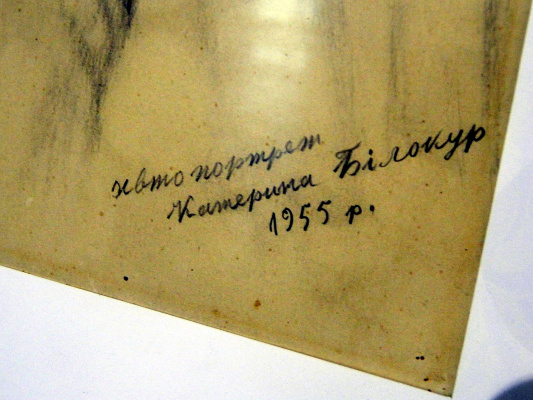 автопортрет
Катерина Білокур
1955 р.